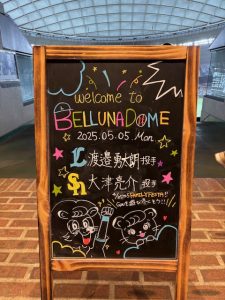 welcome to
BELLUNA DOME
2025.05.05 Mon.
L 渡邉勇太朗 投手
SH 大津亮介 投手